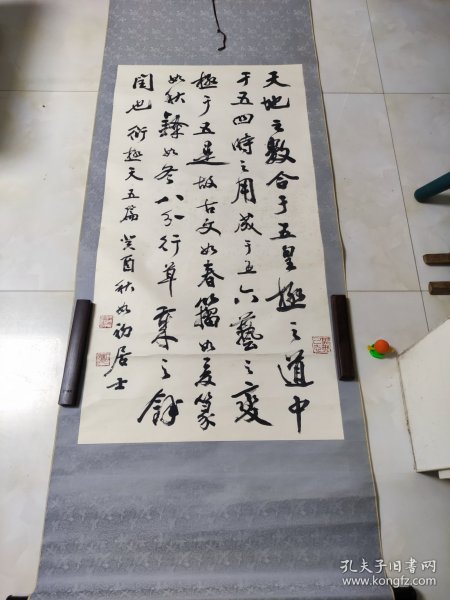 天地之數合于五皇極之道中
于五四時之用成于五六藝之變
極于五是故古文如春籀如夏篆
如秋隸如冬八分行草歲之餘
閏也衍極天五篇 癸酉秋如居士
孔夫子旧书网
www.kongfz.com